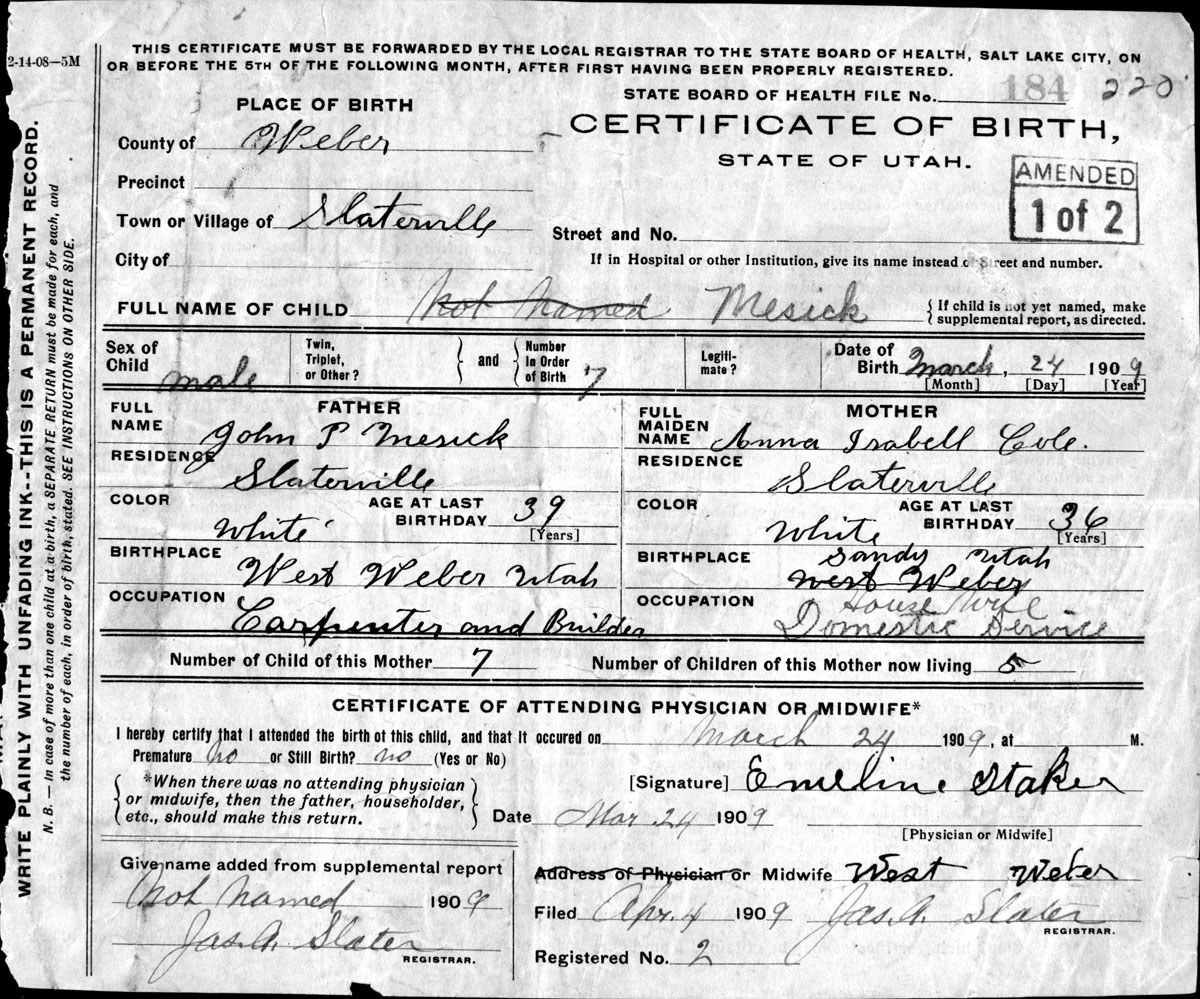 THIS CERTIFICATE MUST BE FORWARDED BY THE LOCAL REGISTRAR TO THE STATE BOARD OF HEALTH, SALT LAKE CITY, ON
2-14-08—5M
OR BEFORE THE 5TH OF THE FOLLOWING MONTH, AFTER FIRST HAVING BEEN PROPERLY REGISTERED.
STATE BOARD OF HEALTH FILE No. 184 220
PLACE OF BIRTH
CERTIFICATE OF BIRTH,
STATE OF UTAH.
AMENDED
1 of 2
County of Weber
Precinct
Town or Village of Slaterville
Street and No.
City of
If in Hospital or other Institution, give its name instead of Street and number.
FULL NAME OF CHILD Not Named Mesick
{If child is not yet named, make
supplemental report, as directed.
Sex of Child male
Twin, Triplet, or Other?
and
Number in Order of Birth 7
Legiti-mate?
Date of Birth March, 24 1909
[Month] [Day] [Year]
FATHER
FULL NAME John P Mesick
RESIDENCE
Slaterville
COLOR White
AGE AT LAST BIRTHDAY 39
[Years]
BIRTHPLACE
West Weber Utah
OCCUPATION
Carpenter and Builder
MOTHER
FULL MAIDEN NAME Anna Isabell Cole.
RESIDENCE
Slaterville
COLOR White
AGE AT LAST BIRTHDAY 36
[Years]
BIRTHPLACE Sandy Utah
West Weber
OCCUPATION House Wife
Domestic Service
Number of Child of this Mother 7
Number of Children of this Mother now living 5
CERTIFICATE OF ATTENDING PHYSICIAN OR MIDWIFE*
I hereby certify that I attended the birth of this child, and that it occured on March 24 1909, at M.
Premature no or Still Birth? no (Yes or No)
*When there was no attending physician
or midwife, then the father, householder,
etc., should make this return.
[Signature] Emeline Staker
Date Mar 24 1909
[Physician or Midwife]
Given name added from supplemental report
Not Named 1909
Jas. A. Slater
REGISTRAR.
Address of Physician or Midwife West Weber
Filed Apr. 4 1909 Jas. A. Slater
REGISTRAR.
Registered No. 2
WRITE PLAINLY WITH UNFADING INK--THIS IS A PERMANENT RECORD.
N. B. — In case of more than one child at a birth, a SEPARATE RETURN must be made for each, and
the number of each, in order of birth, stated. SEE INSTRUCTIONS ON OTHER SIDE.